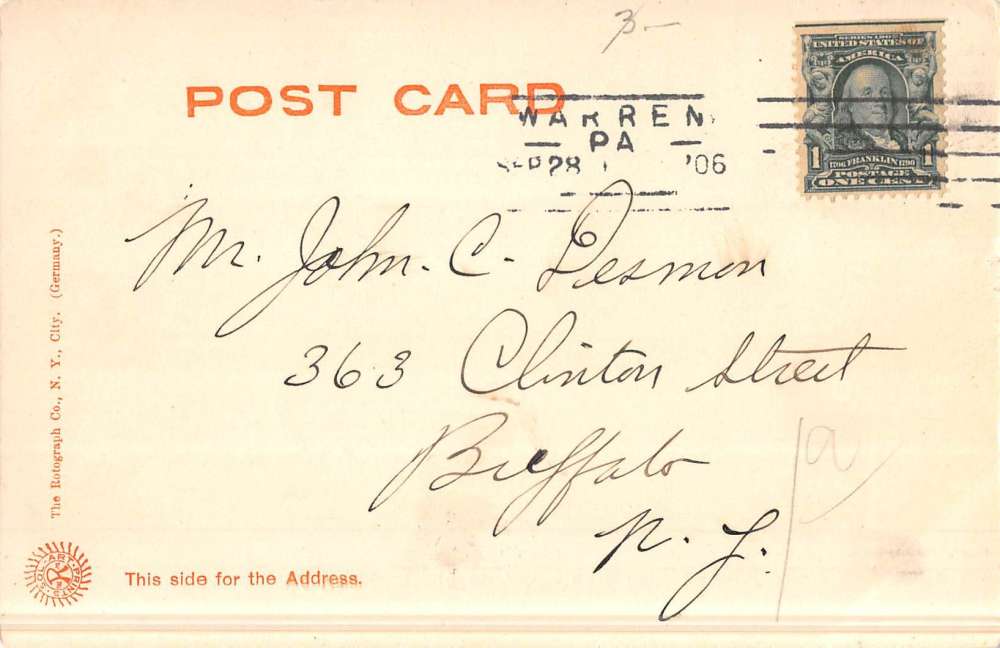 3-
SERIES 1902
UNITED STATES OF
AMERICA
1 1706 FRANKLIN 1790 1
POSTAGE
ONE CENT
POST CARD
WARREN
PA
SEP 28 '06
Mr. John. C. Desmon
363 Clinton Street
Buffalo
N. Y.
The Rotograph Co., N. Y., City. (Germany.)
SOL-ART-PRINTS
This side for the Address.